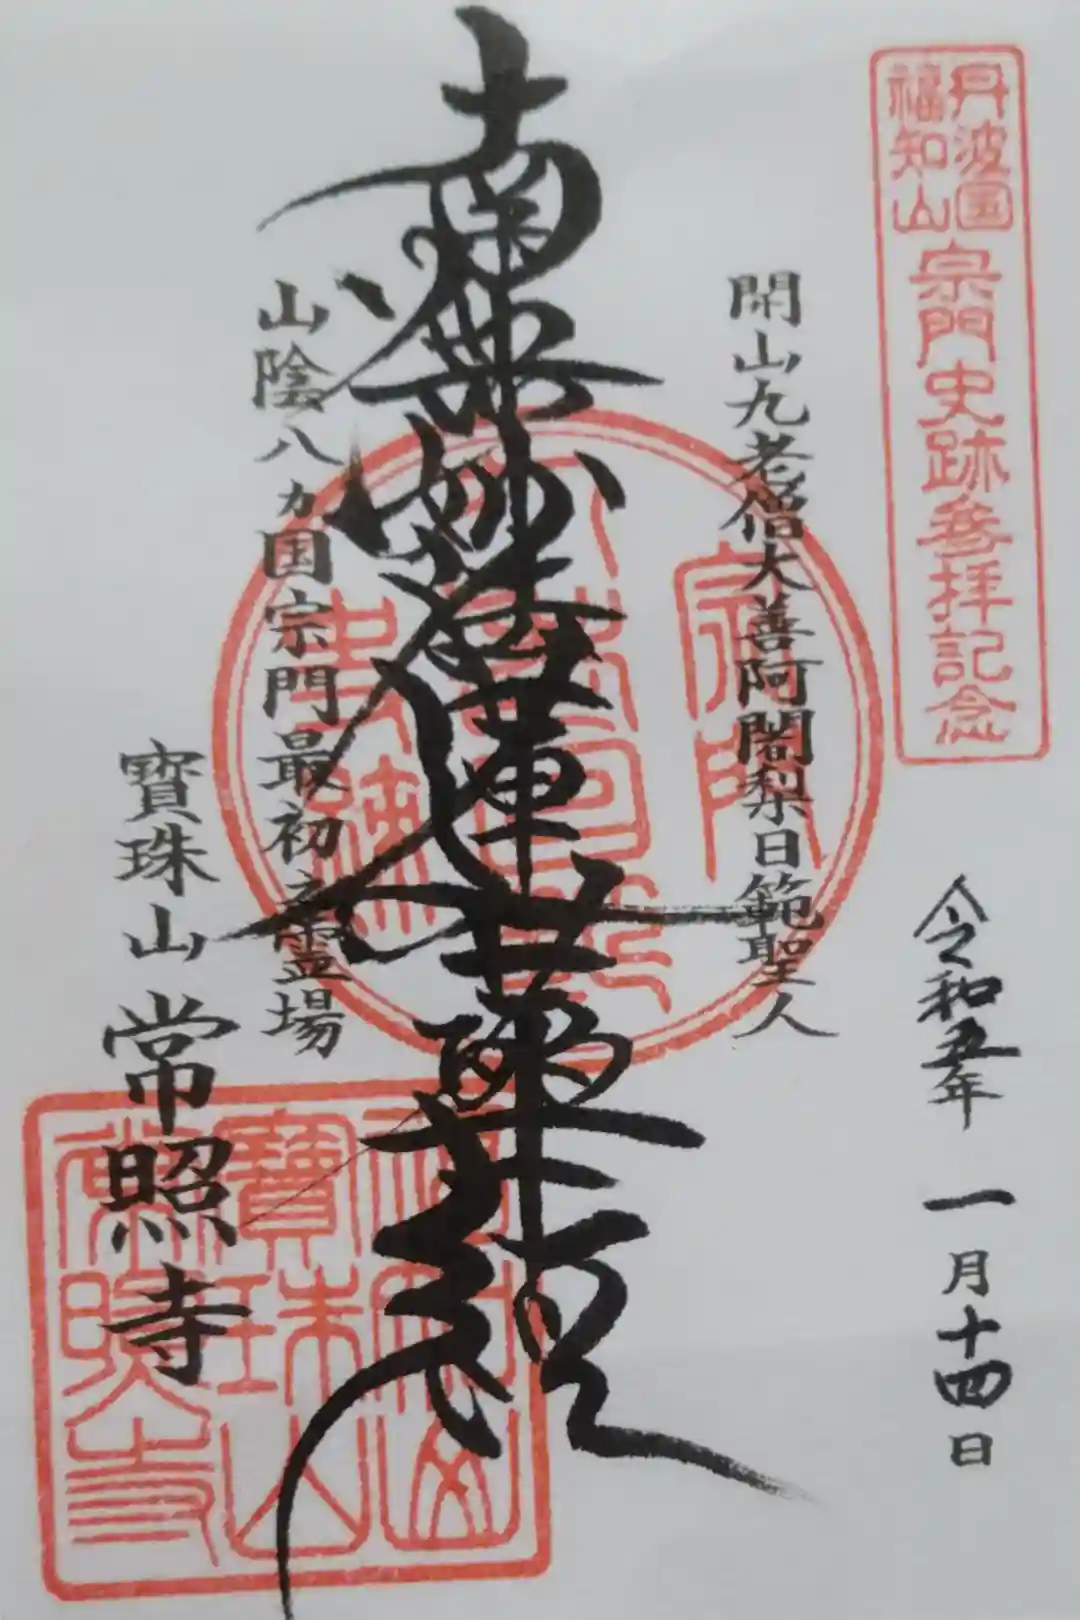 丹波国
福知山
宗門史跡参拝記念
令和五年 一月十四日
開山九老僧大善阿闍梨日範聖人
南無妙法蓮華経
山陰八ヵ国宗門最初之霊場
寶珠山 常照寺
宗門
史蹟
福知山
寶珠山
常照寺